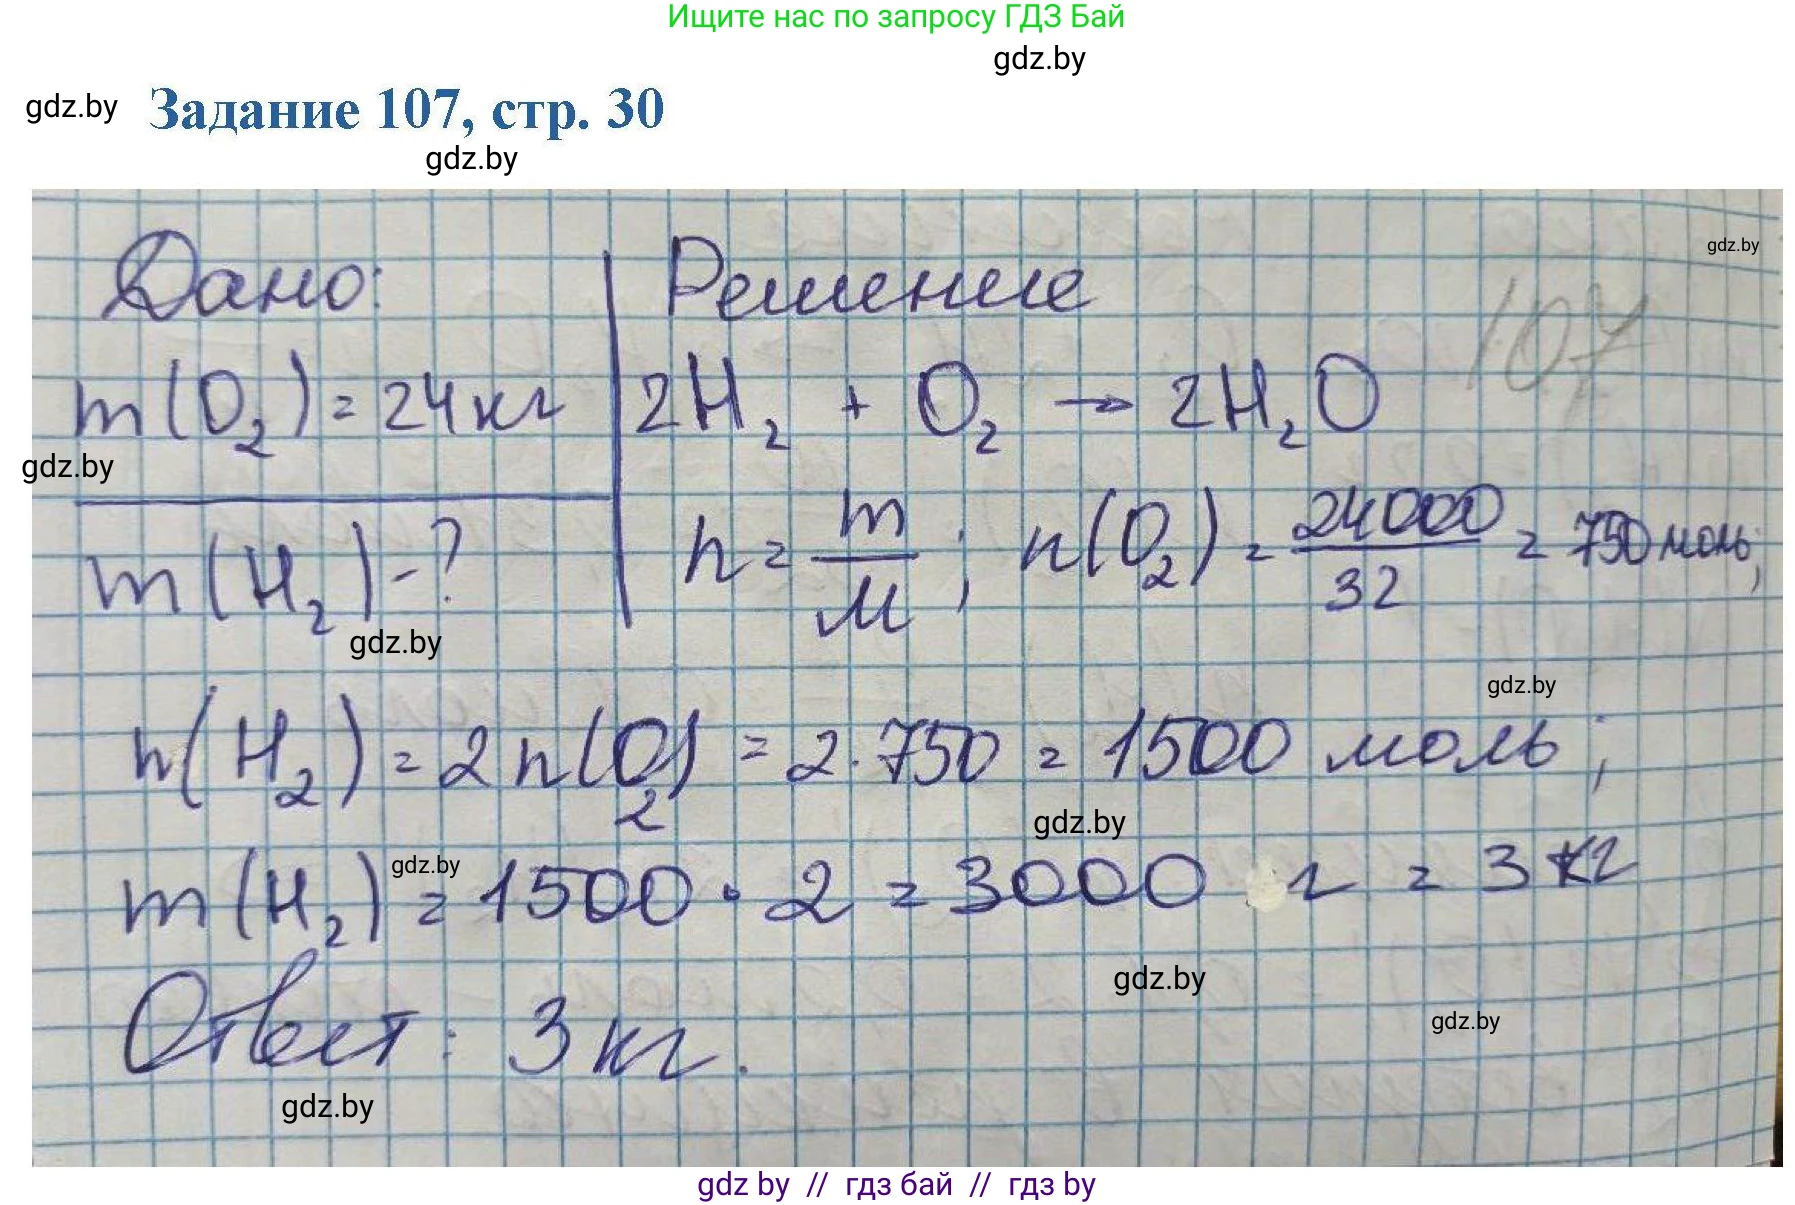 Ищите нас по запросу ГДЗ Бай
gdz.by
gdz.by Задание 107, стр. 30
gdz.by
gdz.by
Дано: Решение 107
m(O₂) = 24 кг 2H₂ + O₂ → 2H₂O
gdz.by
m(H₂) - ? n = m/M ; n(O₂) = 24000/32 = 750 моль;
gdz.by
gdz.by
n(H₂) = 2n(O₂) = 2·750 = 1500 моль;
gdz.by
gdz.by
m(H₂) = 1500 · 2 = 3000 г = 3 кг
gdz.by
Ответ: 3 кг.
gdz.by
gdz.by
gdz by // гдз бай // гдз by